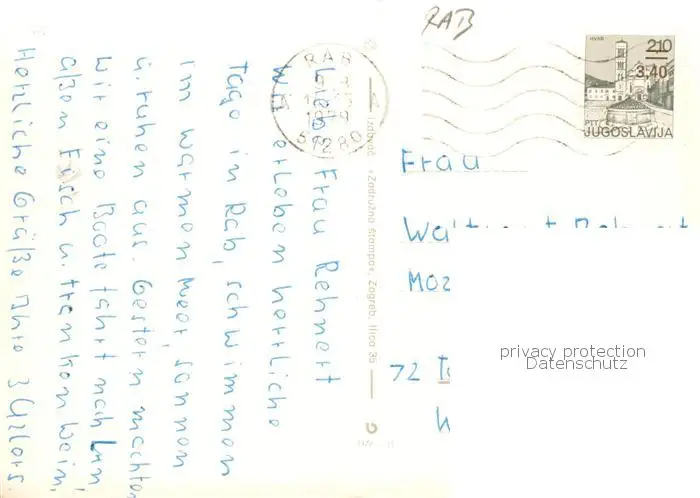 RAB
HVAR
2.10
3.40
PTT
JUGOSLAVIJA
RAB
51280
Liebe Frau Rehnert
Wir erleben herrliche
Tage in Rab, schwimmen
im warmen Meer, sonnen
u. ruhen aus. Gestern machten
wir eine Bootsfahrt nach
aßen Fisch u. tranken Wein,
Herzliche Grüße Ihre 3
Izdavač: »Zadružna štampa«, Zagreb, Ilica 35
Frau
Moz
72
privacy protection
Datenschutz